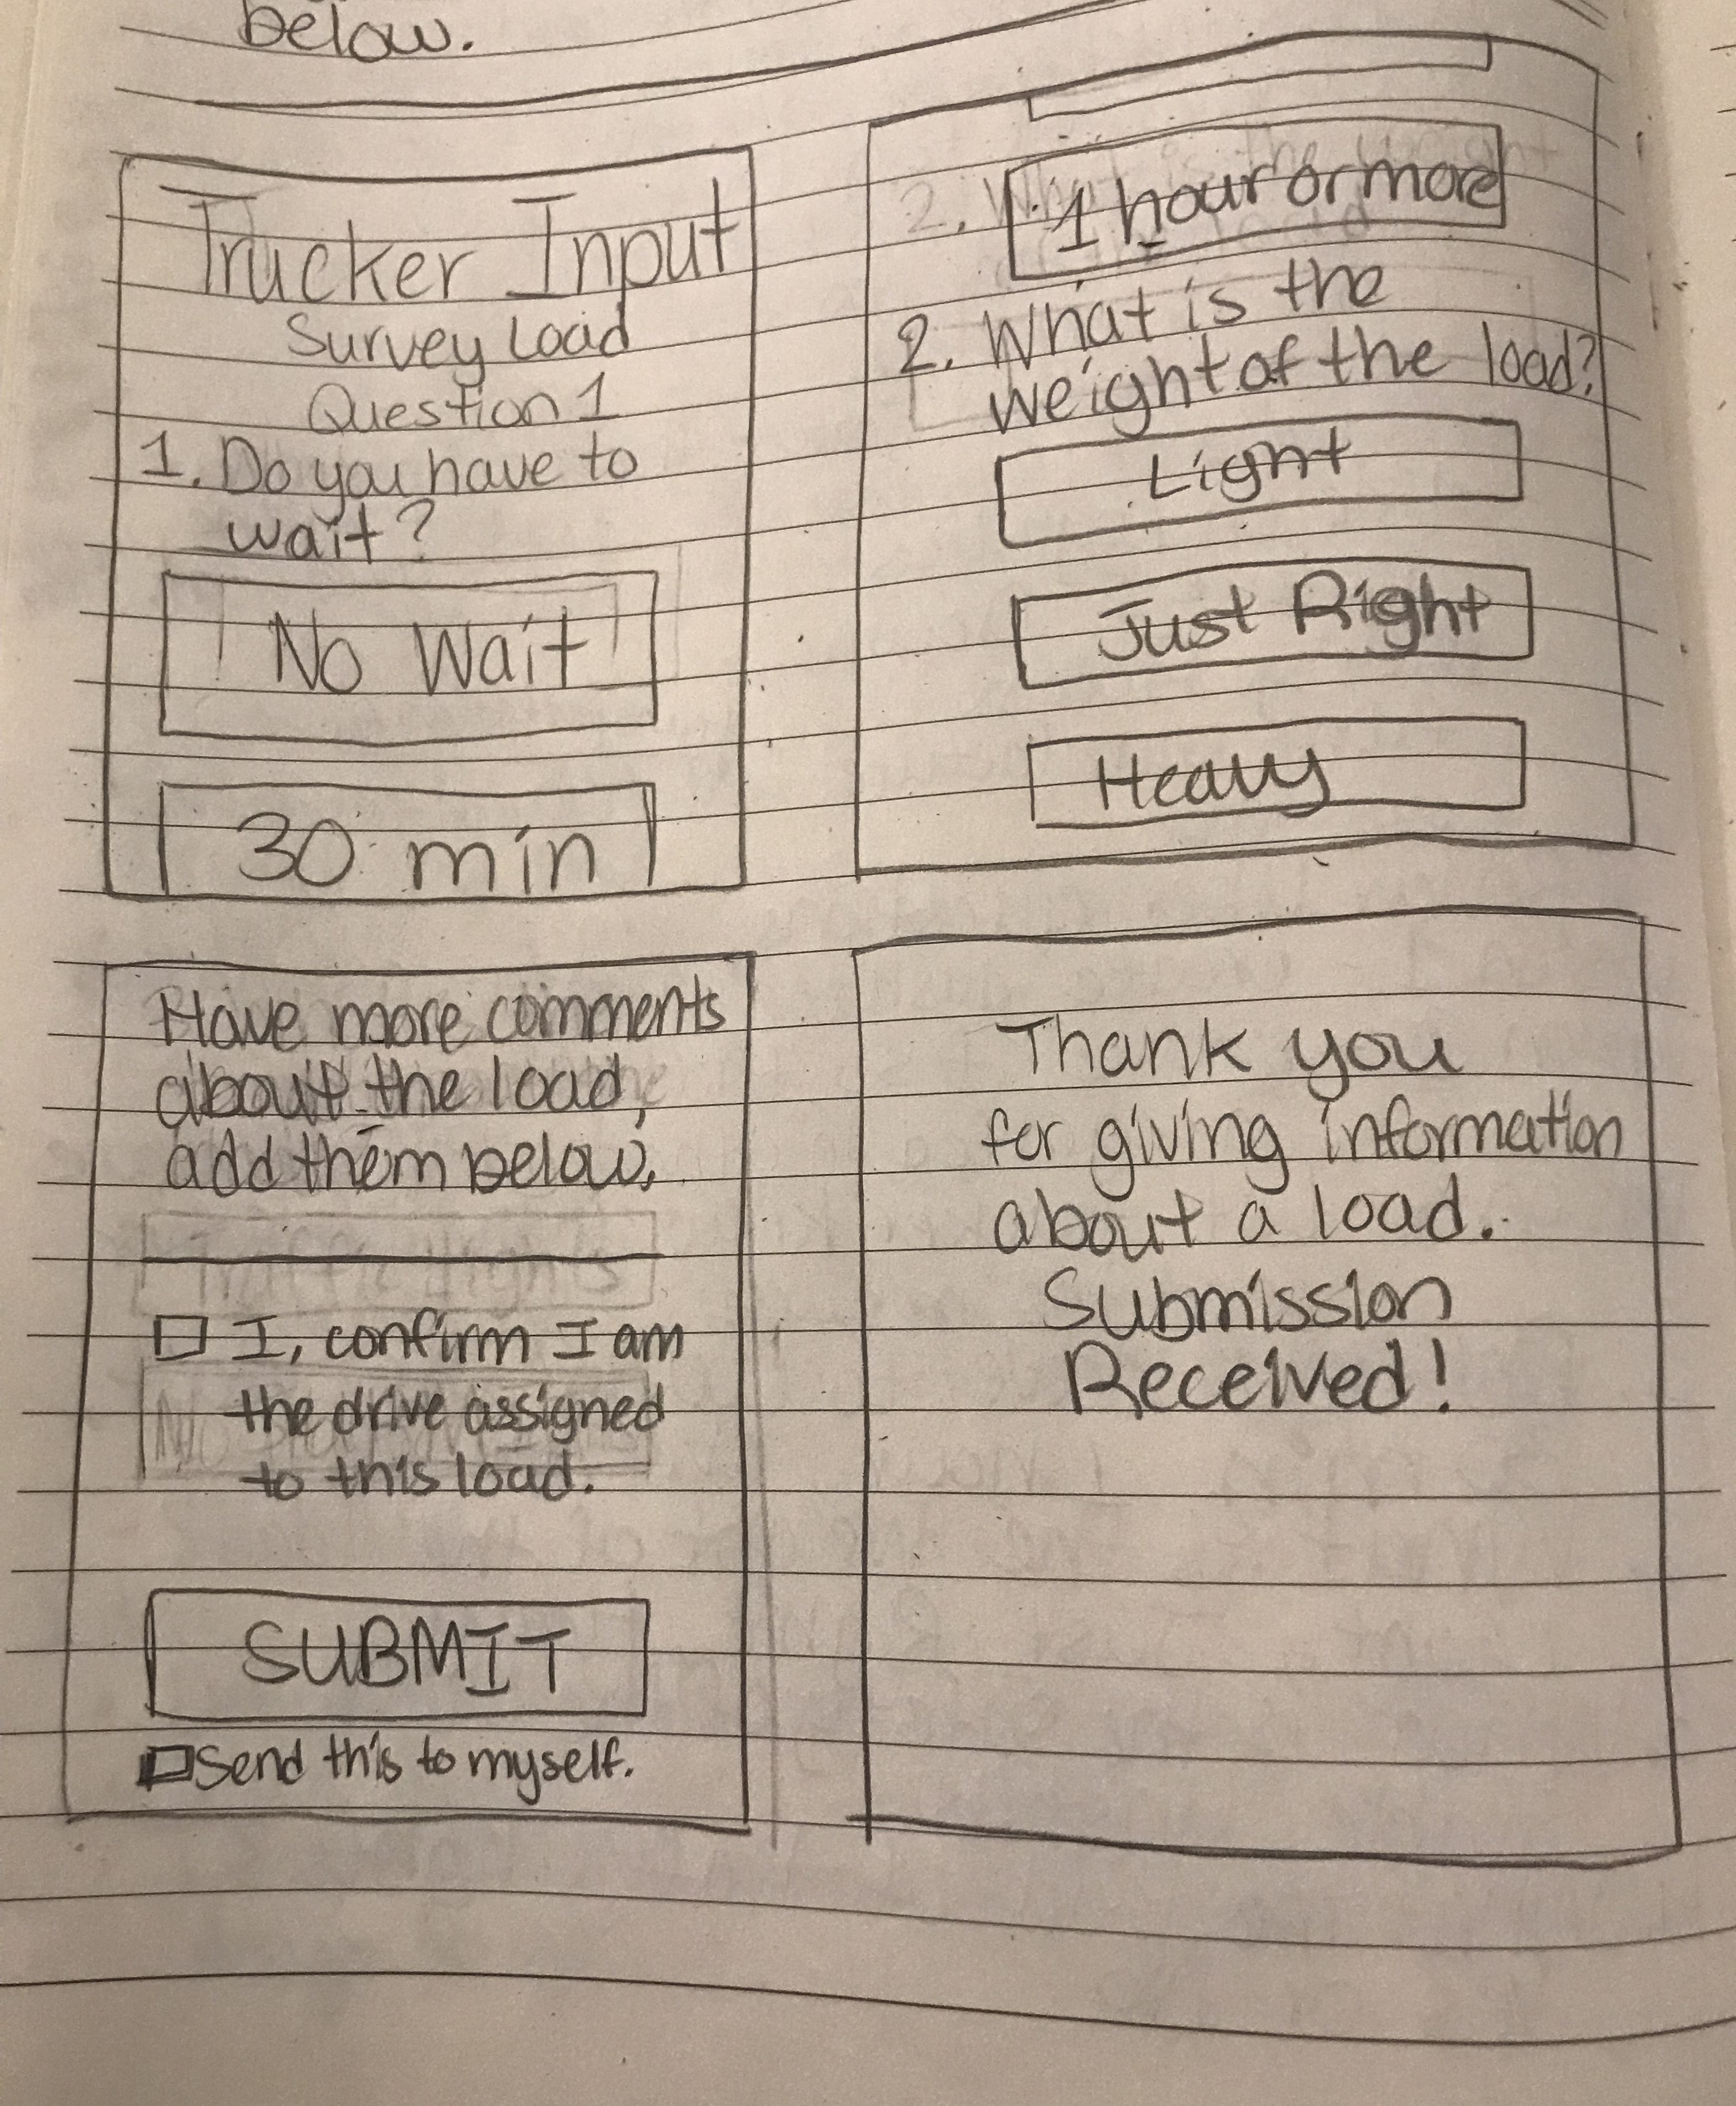 below.
Trucker Input
Survey Load
Question 1
1. Do you have to
wait?
No Wait
30 min
1 hour or more
2. What is the
weight of the load?
Light
Just Right
Heavy
Have more comments
about the load,
add them below.
I, confirm I am
the drive assigned
to this load.
SUBMIT
Send this to myself.
Thank you
for giving information
about a load.
Submission
Received!